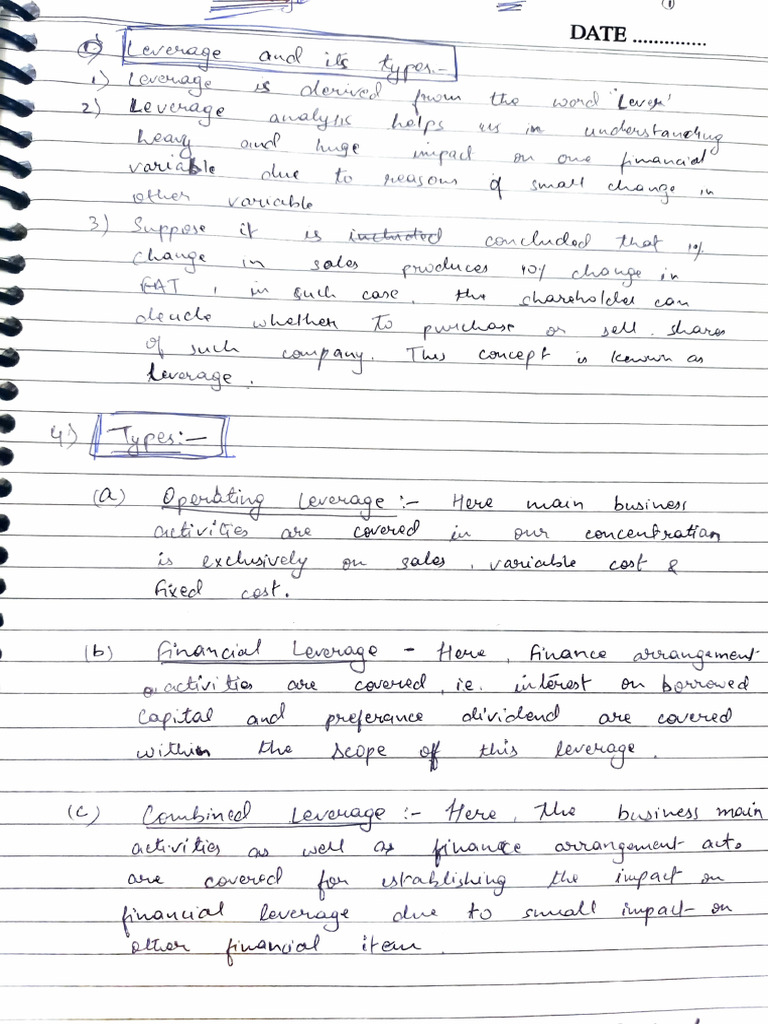 1
DATE ..............
Leverage and its types:-
1) Leverage is derived from the word 'Lever'
2) Leverage analysis helps us in understanding
heavy and huge impact on one financial
variable due to reasons of small change in
other variable
3) Suppose it is included concluded that 1%
change in sales produces 10% change in
EAT, in such case, the shareholder can
decide whether to purchase or sell shares
of such company. This concept is known as
leverage.
4) Types:-
(a) Operating Leverage:- Here main business
activities are covered in our concentration
is exclusively on sales, variable cost &
fixed cost.
(b) Financial Leverage - Here, finance arrangement
activities are covered, i.e. interest on borrowed
capital and preferance dividend are covered
within the scope of this leverage.
(c) Combined Leverage:- Here, the business main
activities as well as finance arrangement act.
are covered for establishing the impact on
financial leverage due to small impact on
other financial item.